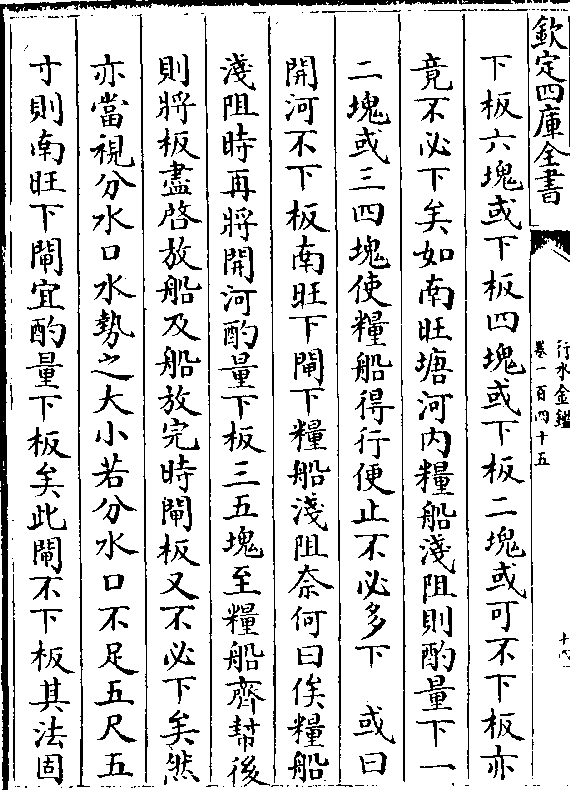 欽定四庫全書
行水金鑑
卷一百四十五
下板六塊或下板四塊或下板二塊或可不下板亦
竟不必下矣如南旺塘河内糧船淺阻則酌量下一
二塊或三四塊使糧船得行便止不必多下　或曰
開河不下板南旺下閘下糧船淺阻奈何曰俟糧船
淺阻時再將開河酌量下板三五塊至糧船齊幫後
則將板盡啓放船及船放完時閘板又不必下矣然
亦當視分水口水勢之大小若分水口不足五尺五
寸則南旺下閘宜酌量下板矣此閘不下板其法固